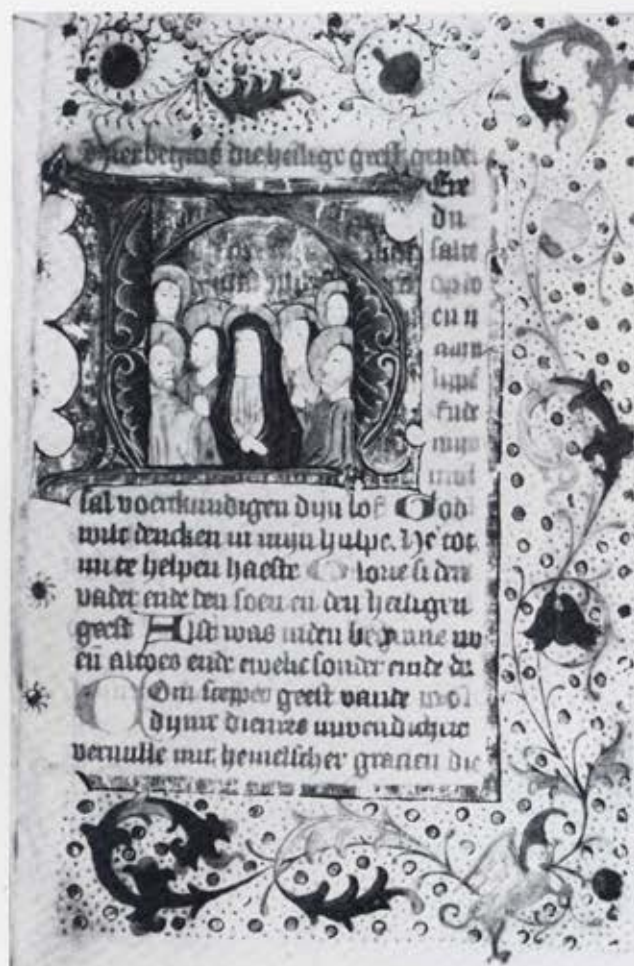 Hier begint die heilige geest getide
Ere
du
salte
op lo
en n
mijn
lipp
Ende
mijn
mnt
sal voerkundigen dijn lof God
wilt dencken in mijn hulpe. He tot
mi te helpen haeste Glorie si den
vader ende den soen en den heiligen
geest Alst was inden beginne nv
eñ altoes ende ewelic sonder einde
Com scepper geest vande
dijnre dienres
vervulle mit hemelscher gracien die